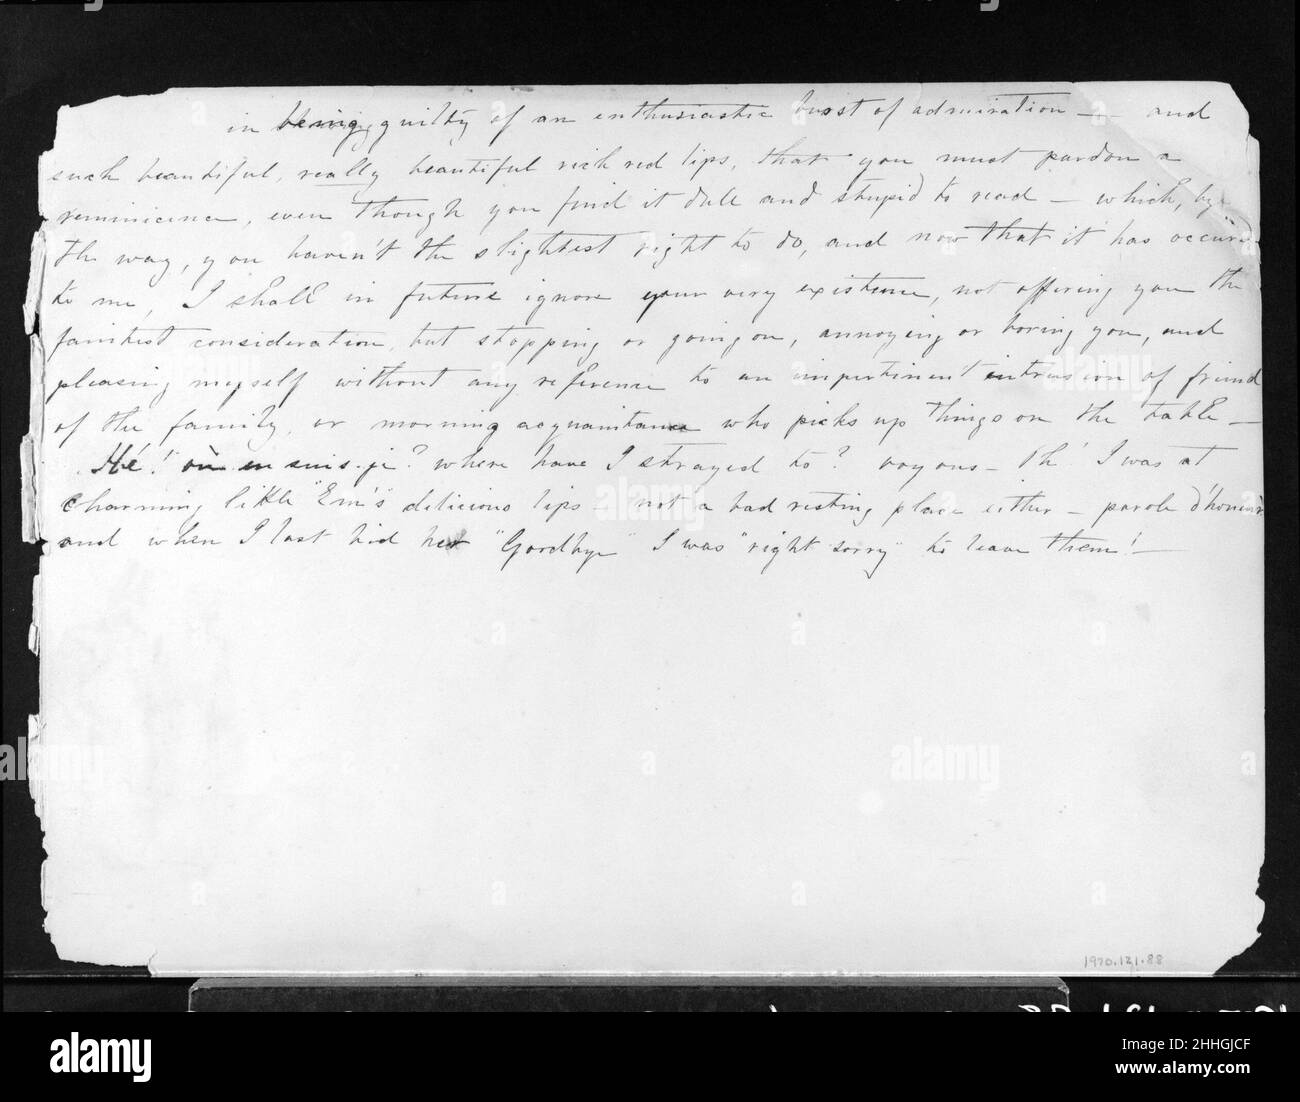 in being guilty of an enthusiastic burst of admiration - - and
such beautiful, really beautiful rich red lips, that you must pardon a
reminicence, even though you find it dull and stupid to read - which, by
the way, you haven't the slightest right to do, and now that it has occured
to me, I shall in future ignore your very existence, not offering you the
faintest consideration, but stopping or going on, annoying or boring you, and
pleasing myself without any reference to an impertinent intrusion of friend
of the family, or morning acquaintance who picks up things on the table -
Hé! où en suis-je? where have I strayed to? voyons - Oh! I was at
charming little "Em's" delicious lips - not a bad resting place either - parole d'honeur
and when I last bid her "Goodbye" I was "right sorry" to leave them! -
1970.121.88
alamy
Image ID: 2HHGJCF
www.alamy.com